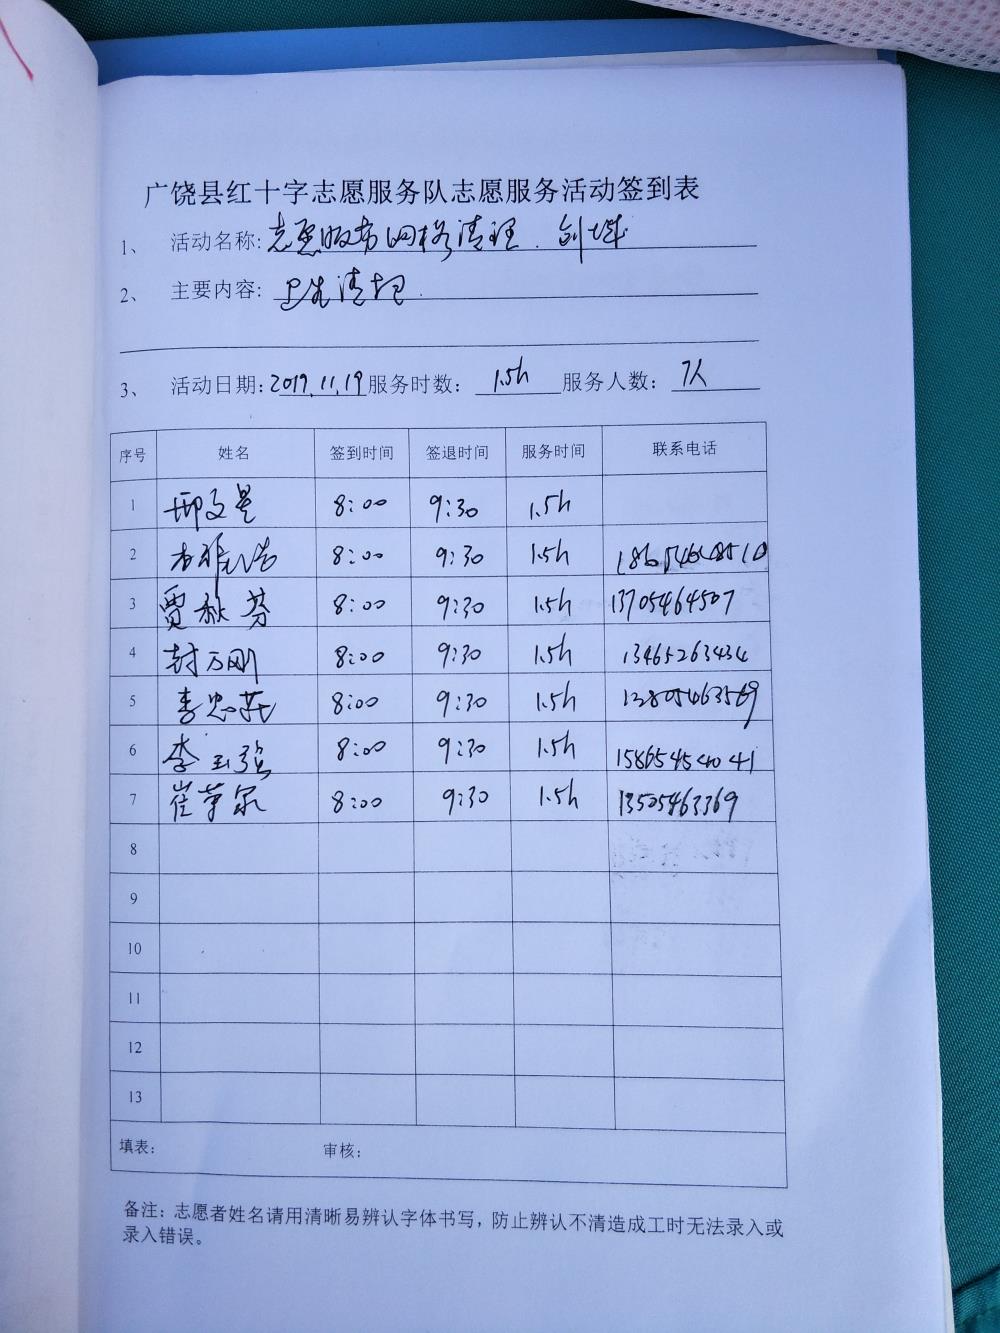 广饶县红十字志愿服务队志愿服务活动签到表
1、 活动名称: 志愿服务网格清理.创城
2、 主要内容: 卫生清理.
3、 活动日期: 2019.11.19 服务时数: 1.5h 服务人数: 7人
序号 姓名 签到时间 签退时间 服务时间 联系电话
1 邢文昱 8:00 9:30 1.5h
2 8:00 9:30 1.5h
3 贾秋芬 8:00 9:30 1.5h 13705464507
4 封万刚 8:00 9:30 1.5h 13465263434
5 李忠花 8:00 9:30 1.5h 13805463569
6 李玉强 8:00 9:30 1.5h
7 崔荣泉 8:00 9:30 1.5h 13505463369
8
9
10
11
12
13
填表: 审核:
备注: 志愿者姓名请用清晰易辨认字体书写，防止辨认不清造成工时无法录入或
录入错误。